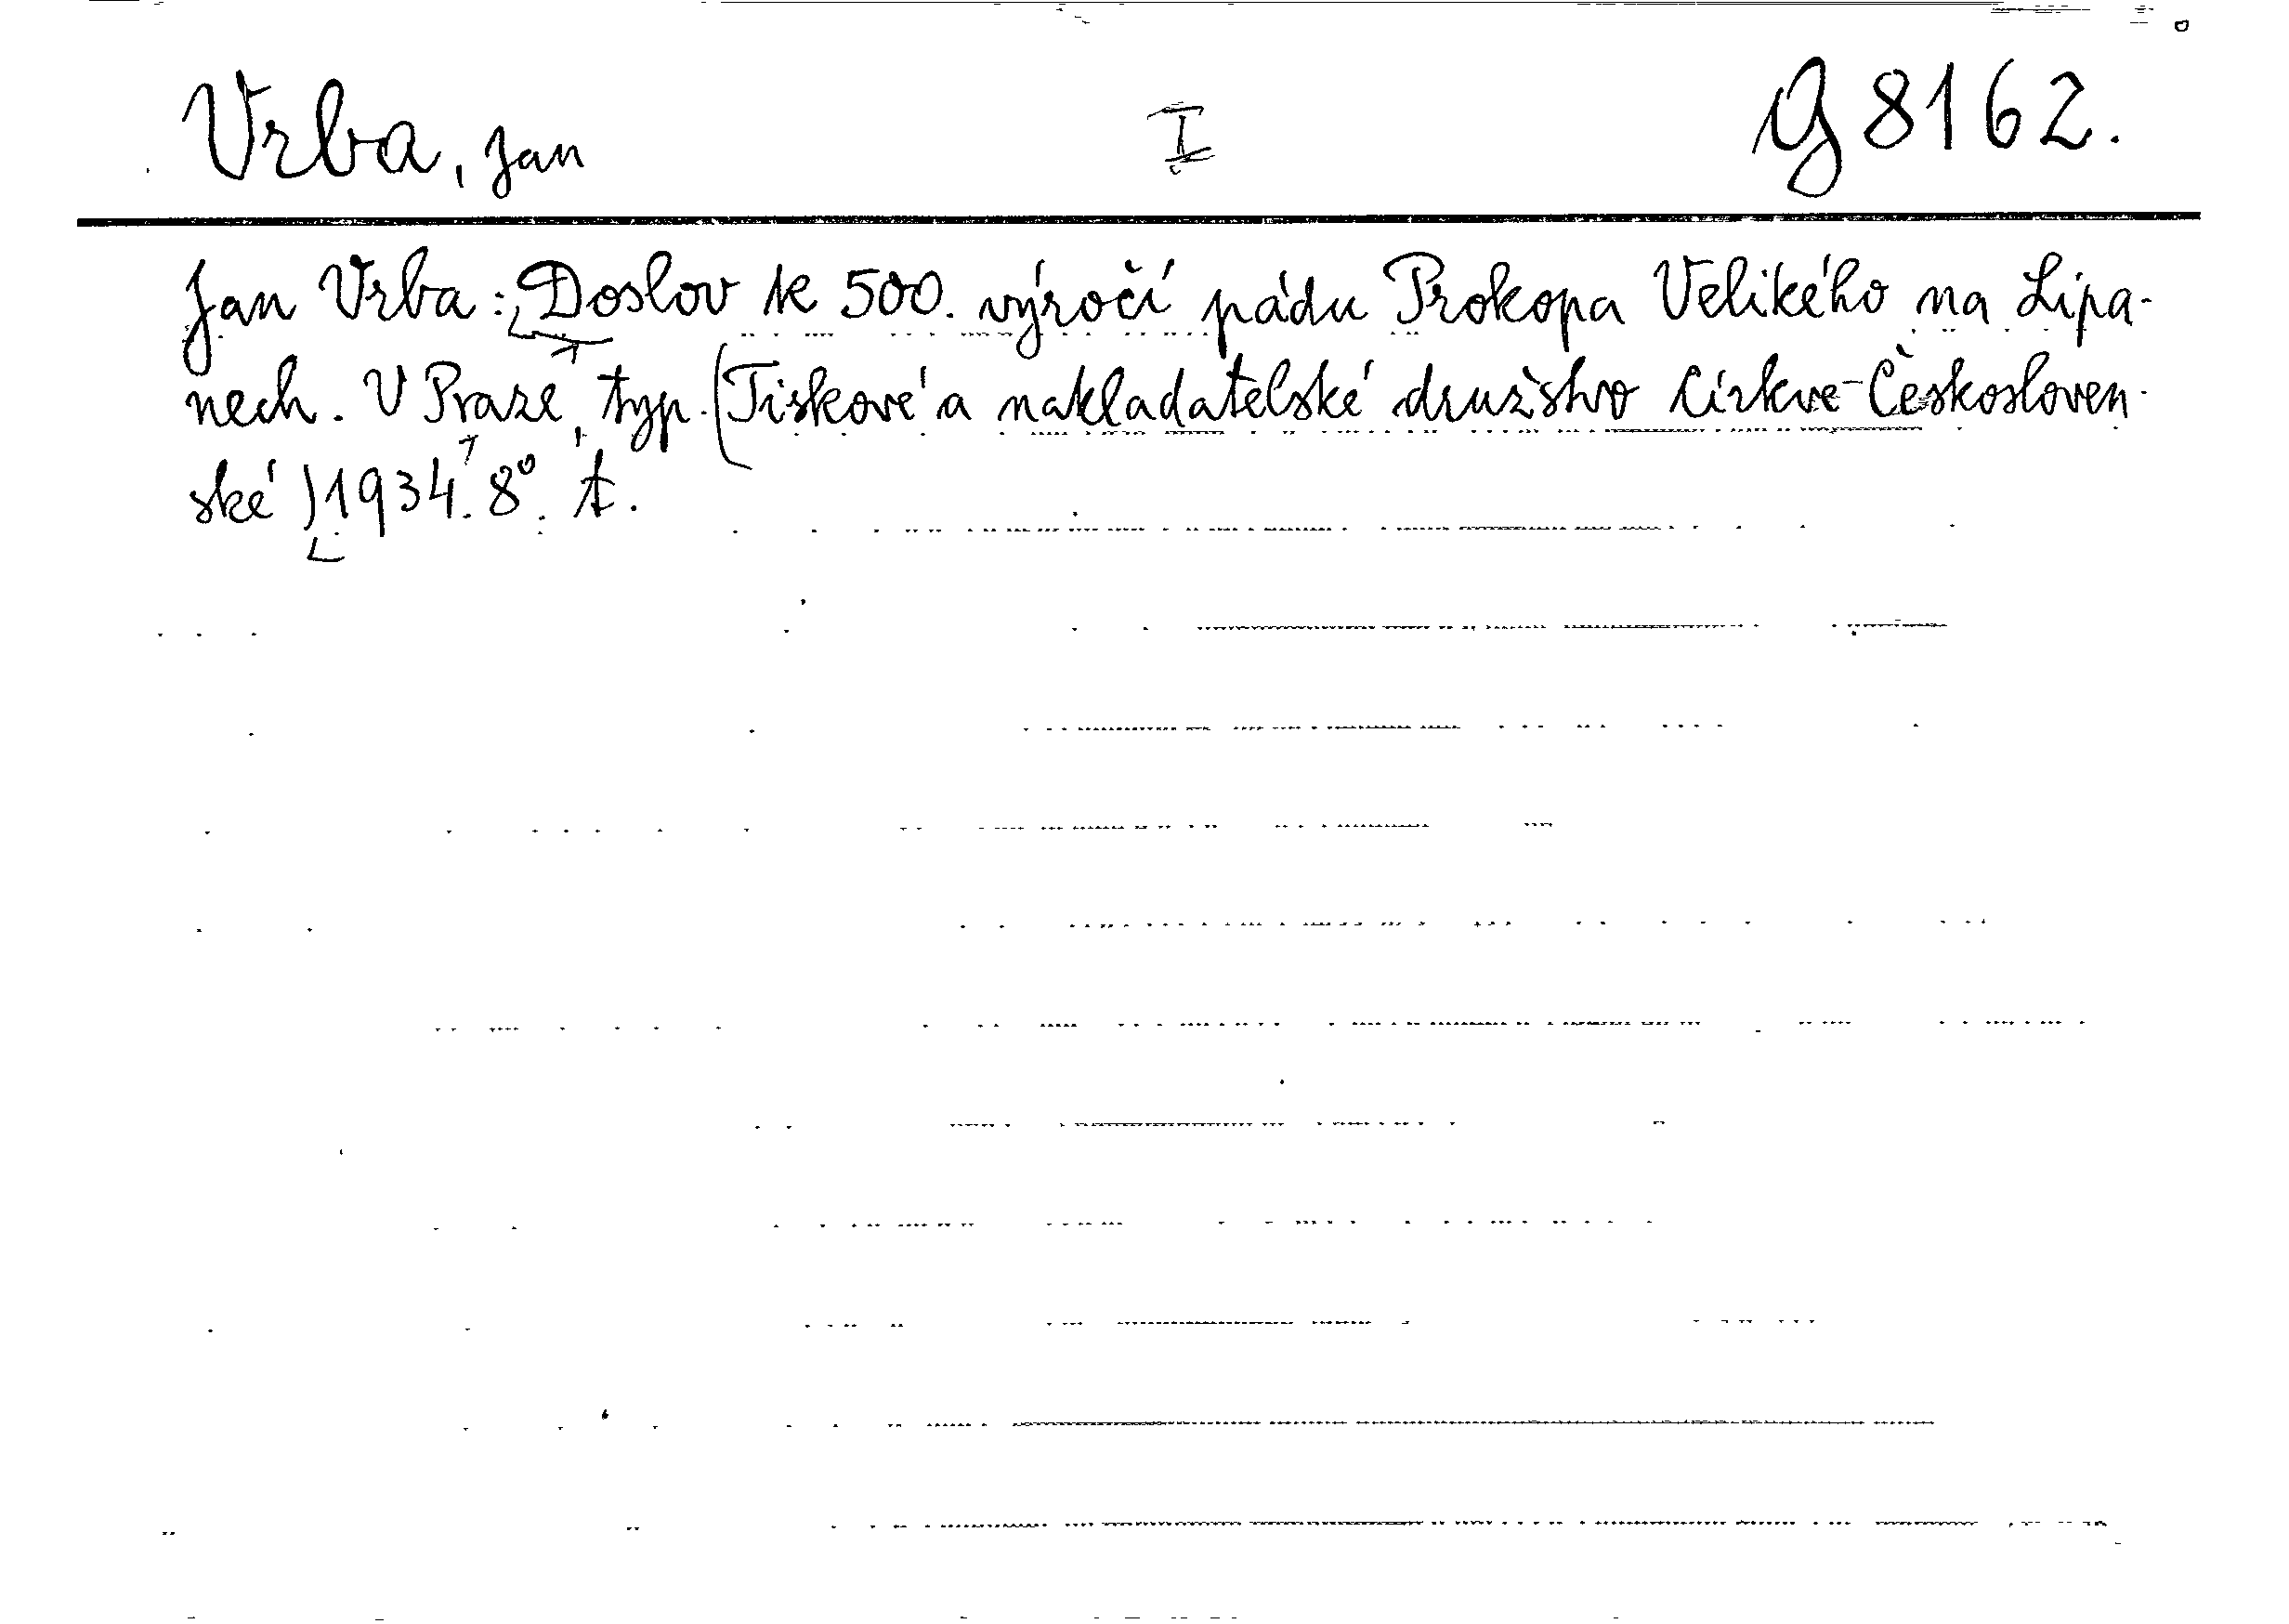 Vrba, Jan I G 8162.
Jan Vrba: Doslov k 500. výročí pádu Prokopa Velikého na Lipa-
nech. V Praze, typ. (Tiskové a nakladatelské družstvo Církve Českosloven-
ské) 1934. 8°. A.